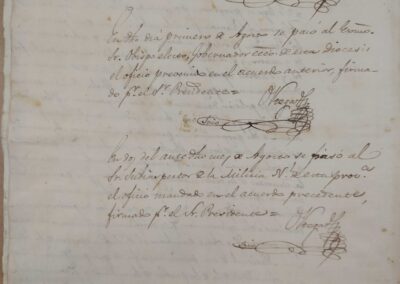 En dho dia primero de Agosto se pasó al Exmo.
Sr. Obispo electo, Gobernador ecco. de esta diocesis
el oficio prevenido en el acuerdo anterior, firma-
do pr. el Sr. Presidente =
En dos del antedho mes de Agosto se pasó al
Sr. Subinspector de la Milicia N. de esta prova.
el oficio mandado en el acuerdo precedente,
firmado pr. el Sr. Presidente =